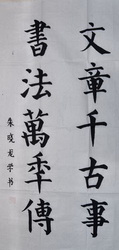 文章千古事
書法萬年傳
朱晓龙学书